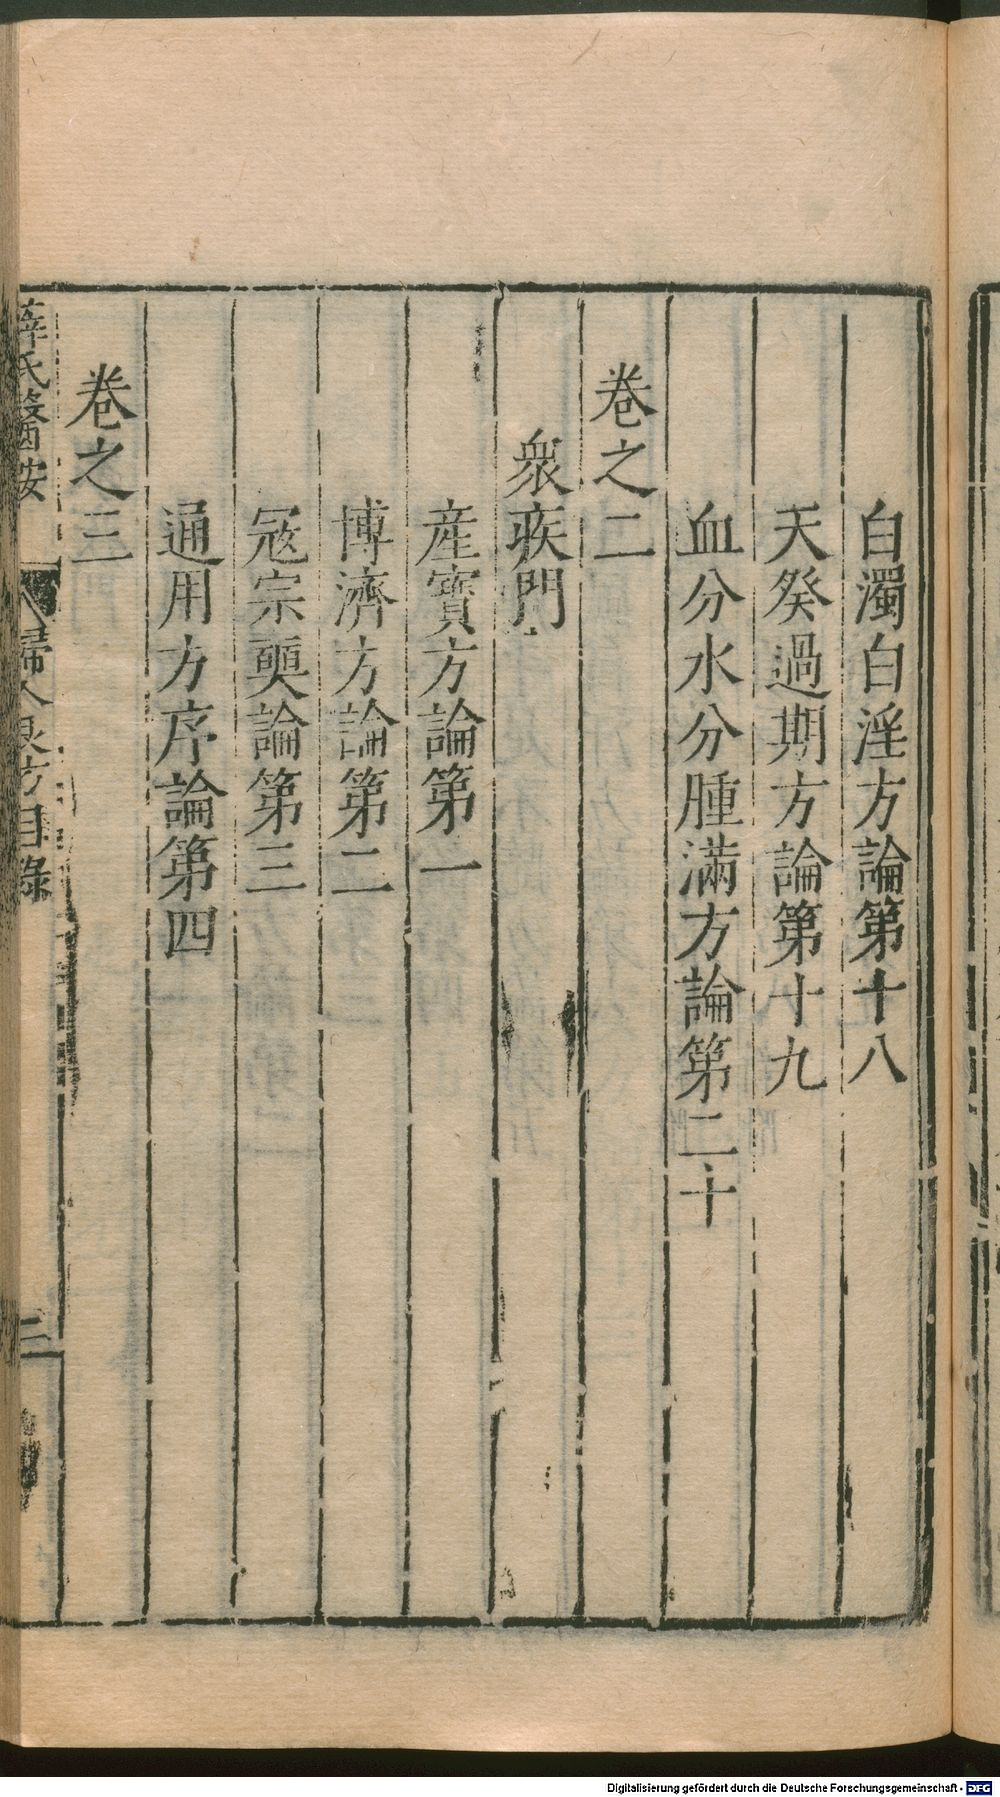 白濁白淫方論第十八
天癸過期方論第十九
血分水分腫滿方論第二十
卷之二
衆疾門
産寳方論第一
博濟方論第二
宼宗奭論第三
通用方序論第四
卷之三
薛氏醫按
婦人良方目錄
二
Digitalisierung gefördert durch die Deutsche Forschungsgemeinschaft - DFG